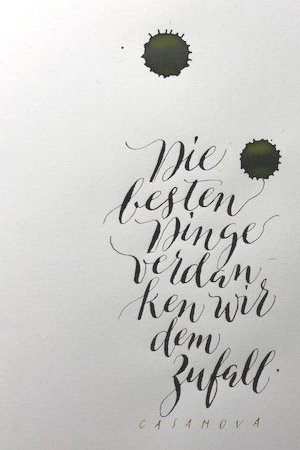 Die
besten
Dinge
verdan
ken wir
dem
Zufall.
CASANOVA